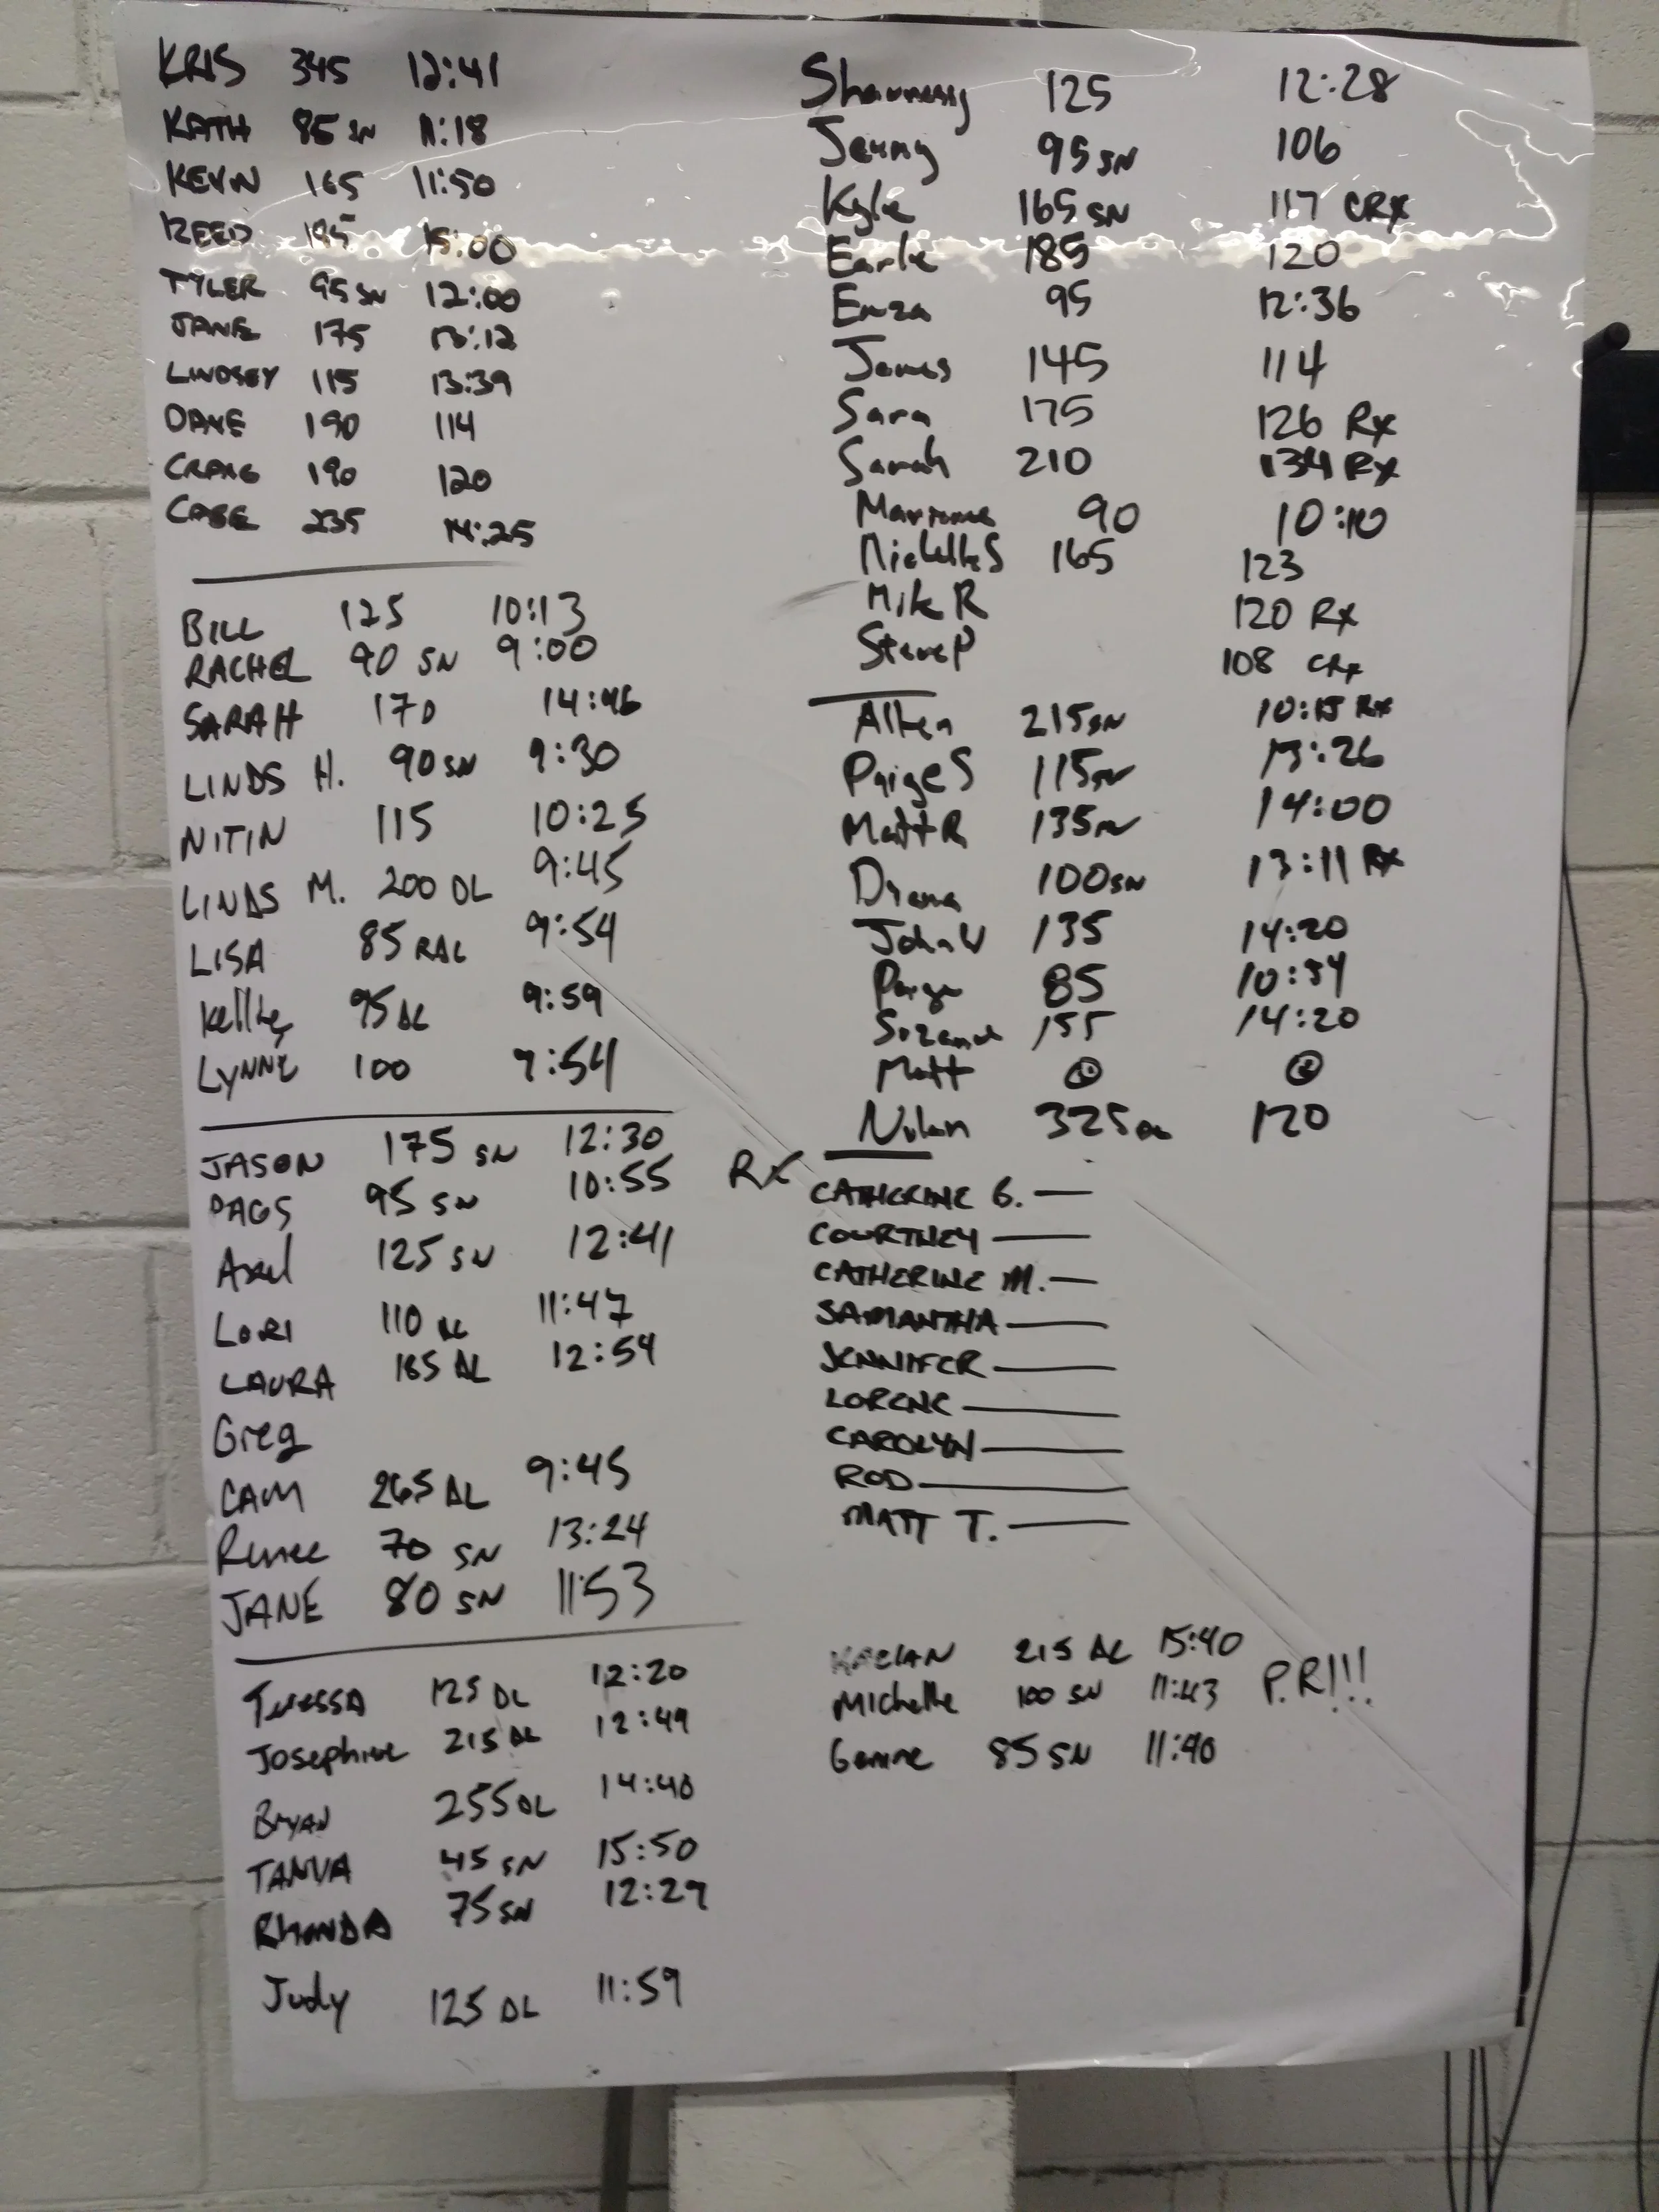 KRIS 345 12:41
KATH 85 SN 11:18
KEVIN 165 11:50
REED 195 15:00
TYLER 95 SN 12:00
JANE 175 13:12
LINDSEY 115 13:39
DAVE 190 114
CRAIG 190 120
CASE 235 14:25
BILL 125 10:13
RACHEL 90 SN 9:00
SARAH 170 14:46
LINDS H. 90 SN 9:30
NITIN 115 10:25
LINDS M. 200 DL 9:45
LISA 85 9:54
Kellie 95 DL 9:59
LYNNE 100 9:54
JASON 175 SN 12:30
PAGS 95 SN 10:55 RX
Axel 125 SN 12:41
LORI 110 DL 11:47
LAURA 185 DL 12:54
Greg
CAM 265 DL 9:45
Renee 70 SN 13:24
JANE 80 SN 11:53
TERESSA 125 DL 12:20
Josephine 215 DL 12:49
BRYAN 255 DL 14:40
TANYA 45 SN 15:50
RHONDA 75 SN 12:29
Judy 125 DL 11:59
Shaunessy 125 12:28
Jenny 95 SN 106
Kyle 165 SN 117 CRX
Earle 185 120
Enza 95 12:36
James 145 114
Sara 175 126 Rx
Sarah 210 134 Rx
90 10:10
Michelle S 165 123
Mike R 120 Rx
Steve P 108 CRx
Allen 215 SN 10:15 Rx
Paige S 115 SN 13:26
Matt R 135 SN 14:00
Diana 100 SN 13:11 Rx
John W 135 14:20
Paige 85 10:54
Suzanne 155 14:20
Matt
Nolan 325 DL 120
CATHERINE G. —
COURTNEY —
CATHERINE M. —
SAMANTHA —
JENNIFER —
LORENE —
CAROLYN —
ROD —
MATT T. —
KAELAN 215 DL 15:40
Michelle 100 SN 11:43 P.R!!!
85 SN 11:40